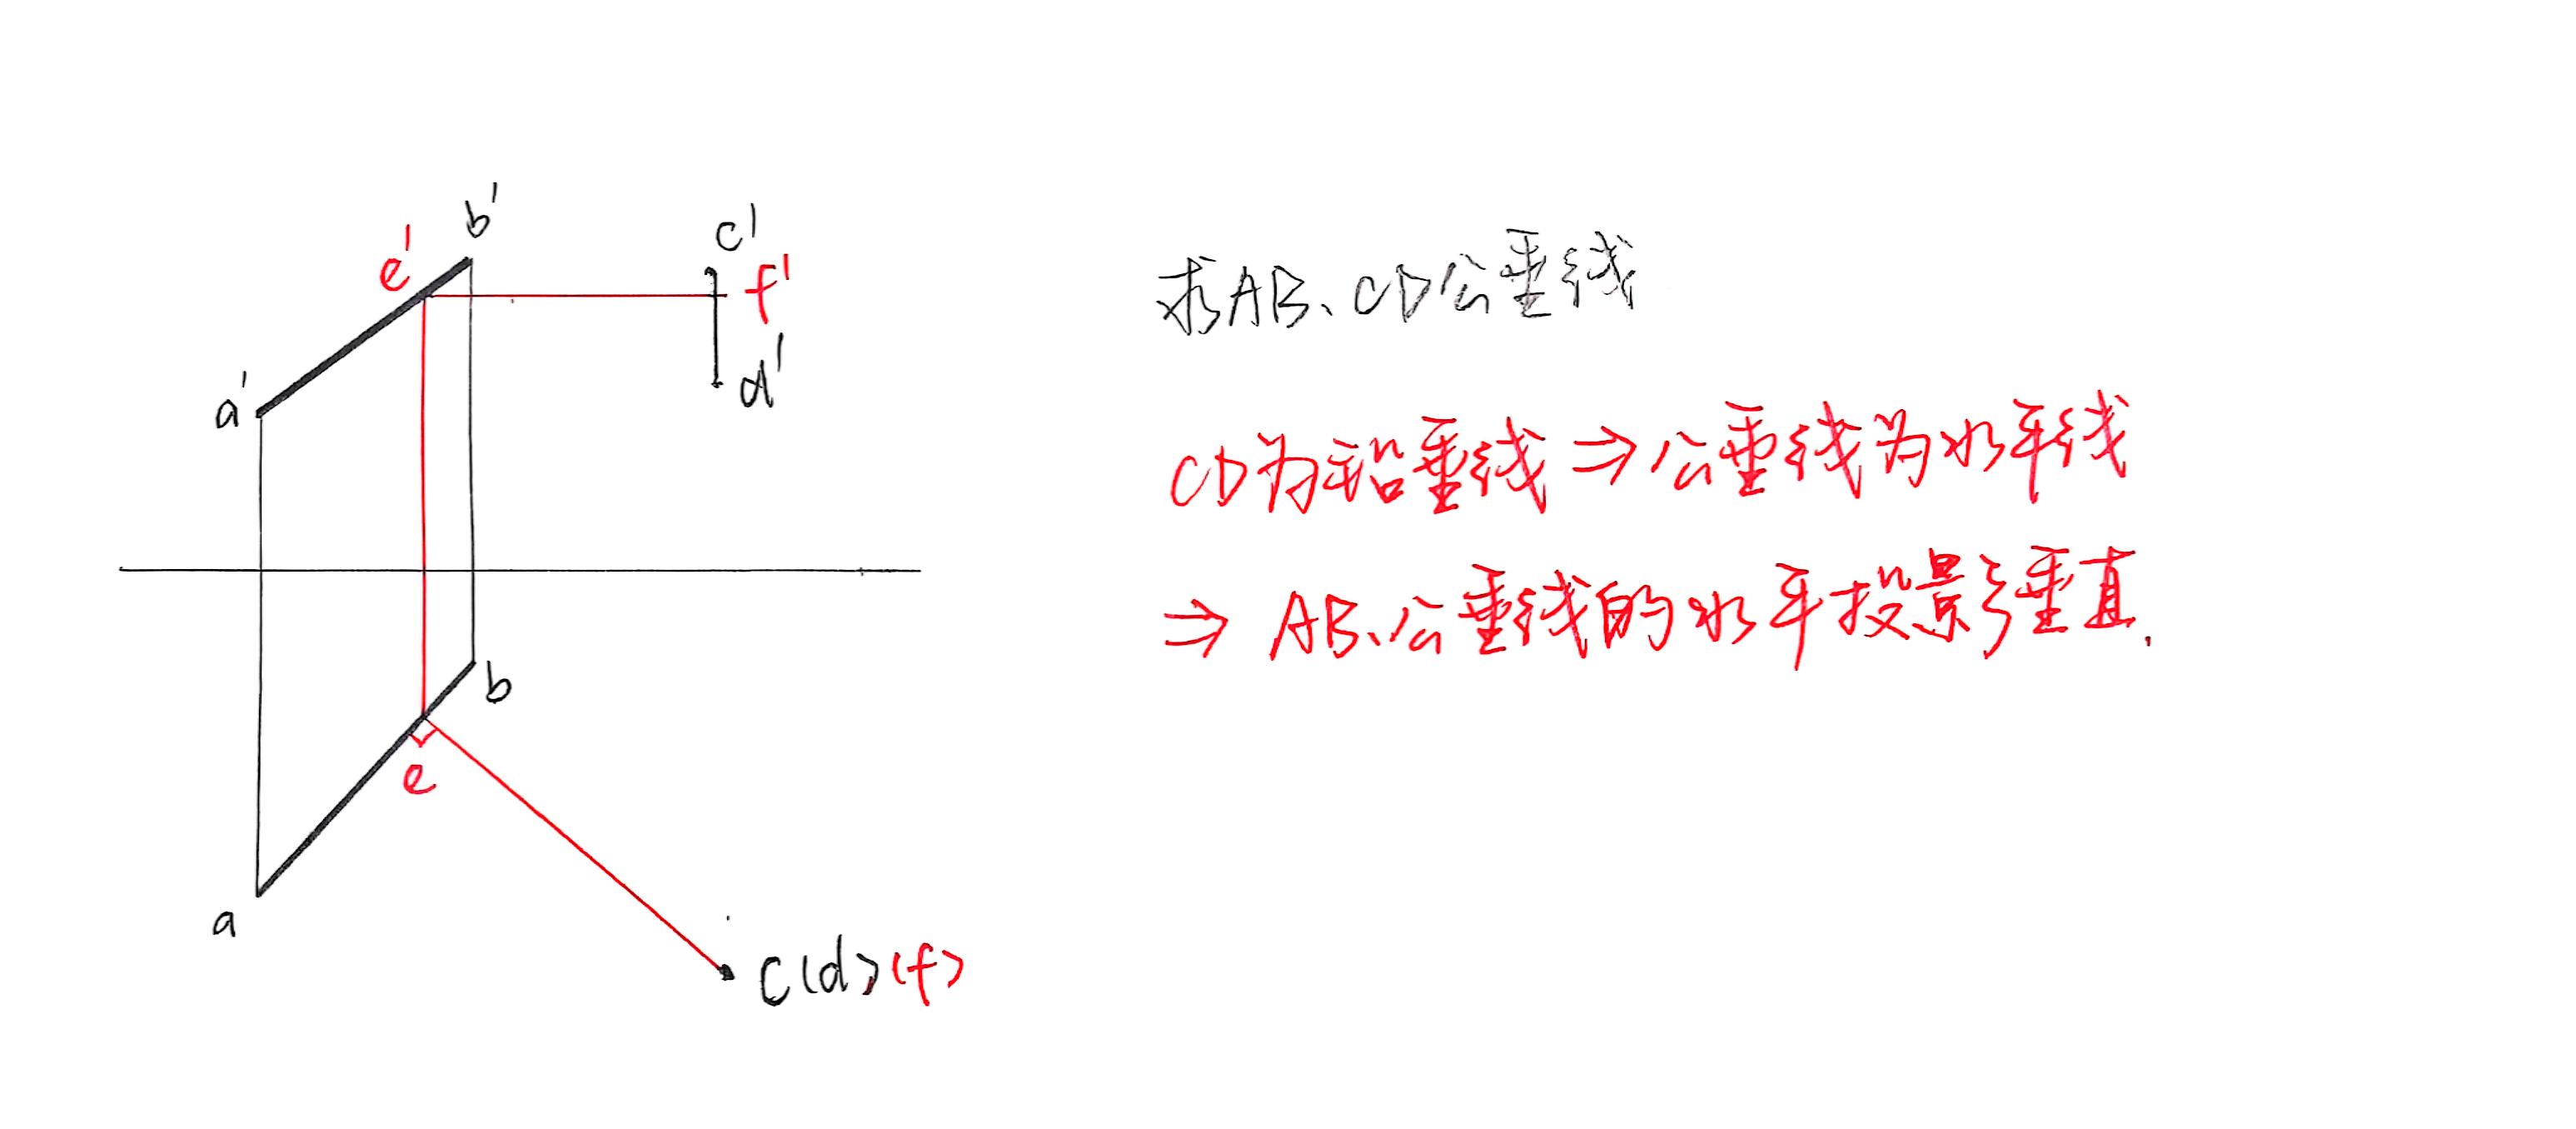 b'
e'
c'
f'
a'
d'
b
e
a
c(d)(f)
求AB、CD公垂线
CD为铅垂线⇒公垂线为水平线
⇒AB、公垂线的水平投影垂直.